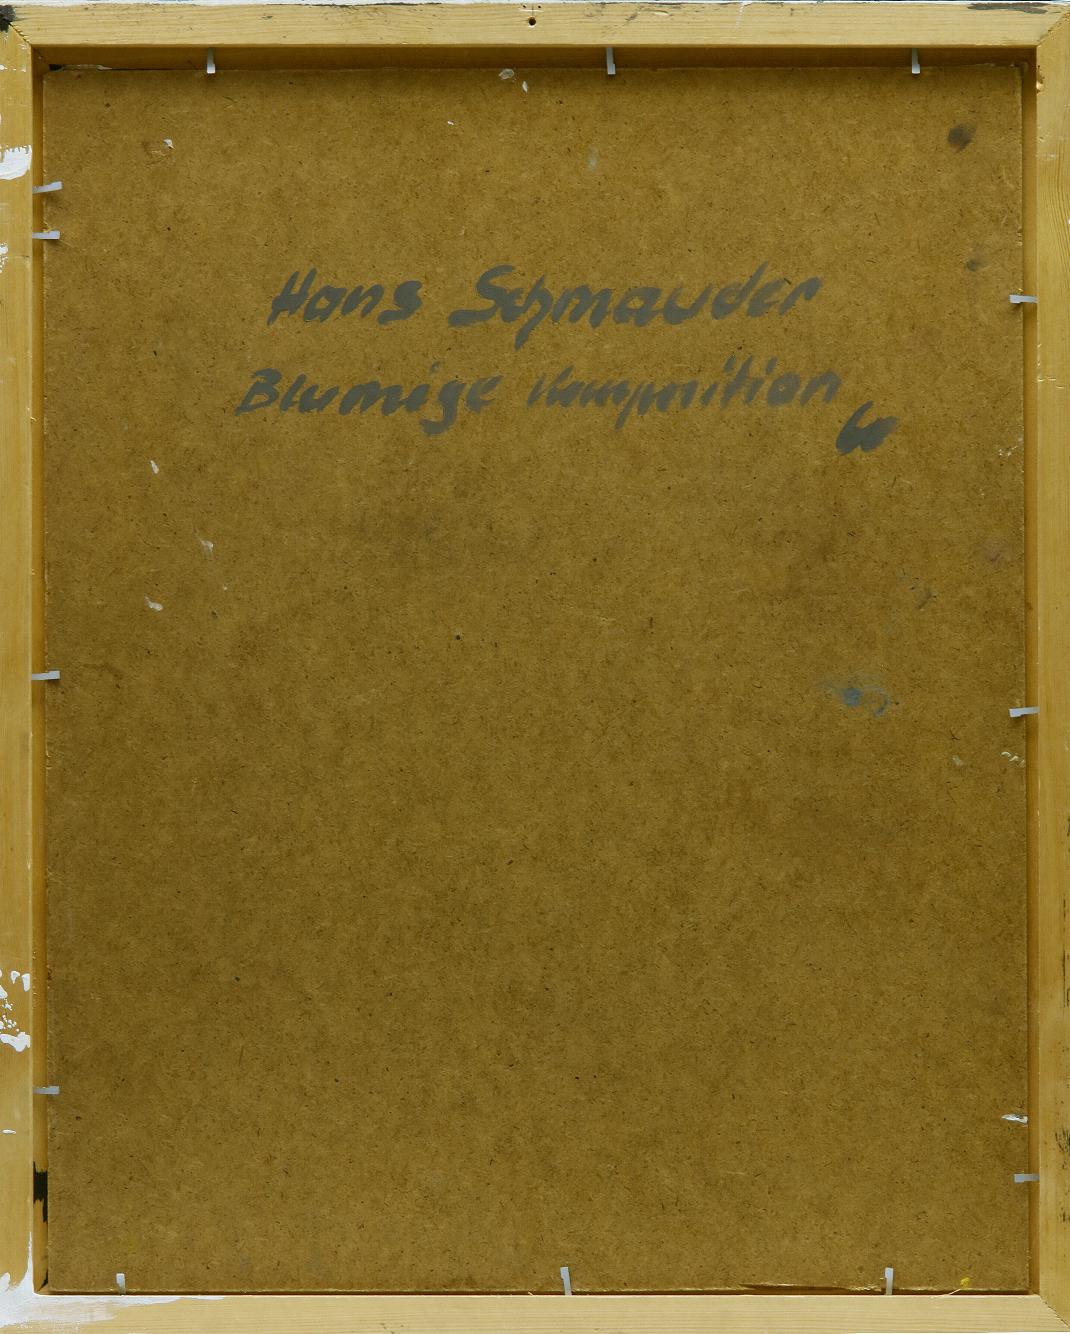 Hans Schmauder
Blumige Komposition